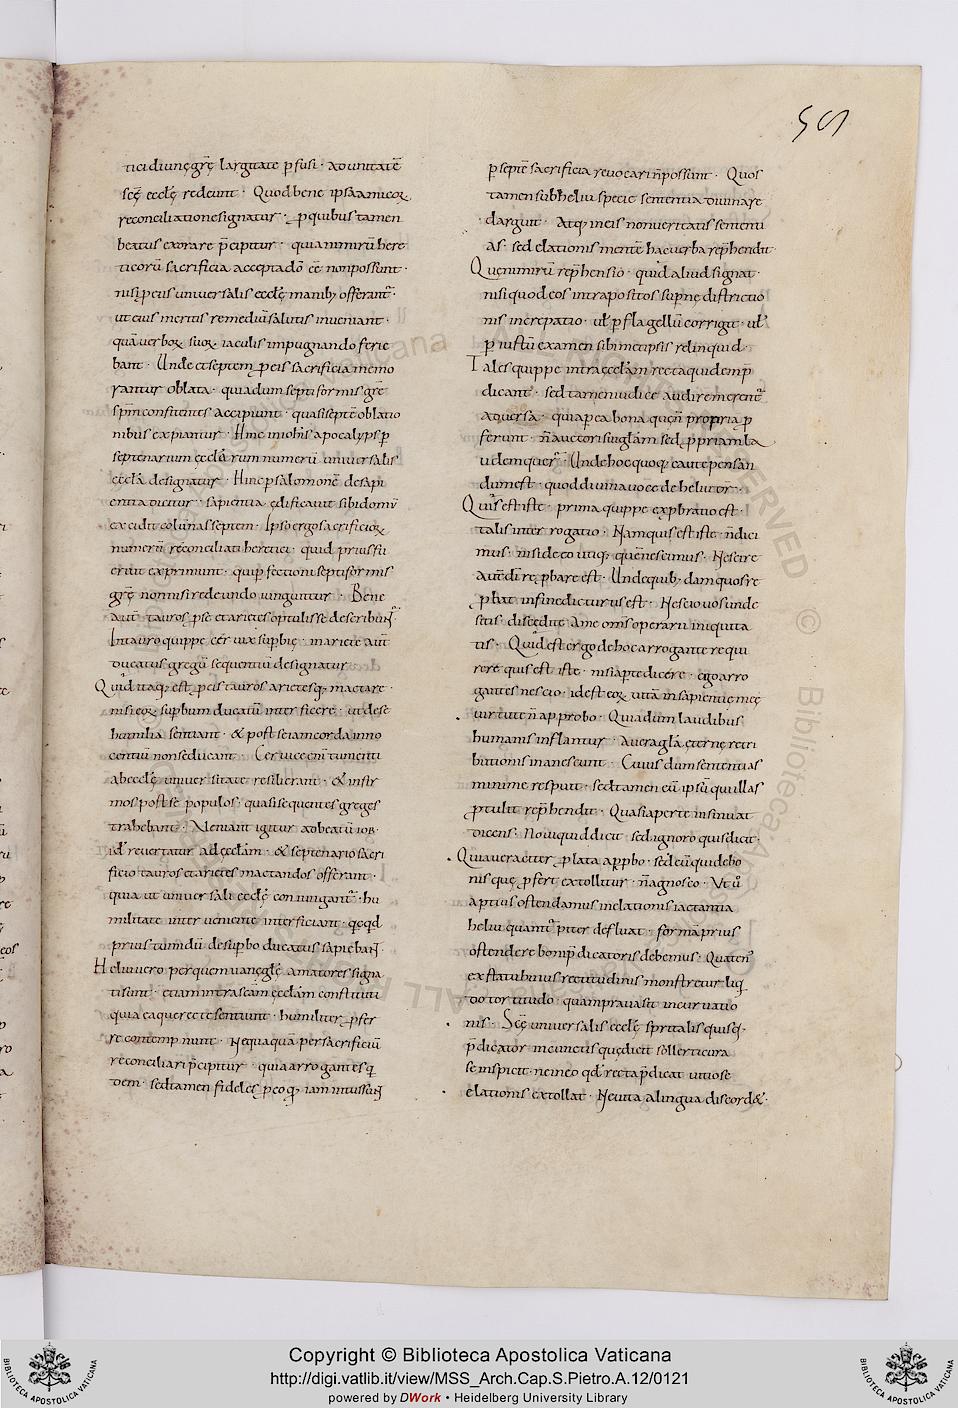 tici diuinę grę largitate pfusi · ad unitatē
scę ecclę redeunt · Quod bene ipsa amicoꝝ
reconciliatione signatur · p quibus tamen
beatus exorare pcipitur · quia nimirū here
ticorū sacrificia accepta dō eē non possunt ·
nisi p eis uniuersalis ecclę manib; offerantur ·
ut eius meritis remediū salutis inueniant ·
quā uerboꝝ suoꝝ iaculis impugnando ferie
bant · Unde et septem p eis sacrificia memo
rantur oblata · quia dum septiformis grę
spm confitentes accipiunt · quasi septē oblatio
nibus expiantur · Hinc in iohis apocalyps p
septenarium ęcclārum numerū uniuersalis
ecclā designatur · Hinc p salomonē de sapi
entia dicitur · sapientia ędificauit sibi domū
excidit columnas septem · Ipso ergo sacrificioꝝ
numerū reconciliati heretici · quid prius fu
erint exprimunt · qui pfectioni septiformis
grę non nisi redeundo iunguntur · Bene
aut tauros p se et arietes optulisse describunt ·
In tauro quippe ceruix supbię · in ariete aut
ducatus gregū sequentiū designatur
Quid itaq; est p eis tauros arietesq; mactare ·
nisi eoꝝ supbum ducatū interficere · ut de se
humilia sentiant · & post se iam corda inno
centiū non seducant · Ceruice enī tumenti
ab ecclę uniuersitate resilierant · & infir
mos post se populos · quasi sequentes greges
trahebant · Ueniant igitur ad beatū iob ·
id ē reuertatur ad ęcclam · & septenario sacri
ficio tauros et arietes mactandos offerant ·
quia ut uniuersali ecclę coniungantur · hu
militate interueniente interficiant · q̨cq̨d
prius tumidū de supbo ducatus sapiebant ·
Heliu uero per quem uanę glę amatores signa
ti sunt · etiam intra scam ęcclam constituti
quia ea que recte sentiunt · humiliter pfer
re contempnunt · Nequaquā per sacrificiū
reconciliari pcipitur · quia arrogantes q
dem · sed tamen fideles · p eo q; iam intus sunt
p septē sacrificia reuocari n̄ possunt · Quos
tamen sub heliu specie sententia diuina re
darguit · Atq; in eis non ueritatis sententi
as · sed elationis mentē hac uerba reprehendit ·
Que nimirū reprehensio · quid aliud signat ·
nisi quod eos intra positos supnę districtio
nis increpatio · ul p flagellū corrigit · ul
p iustū examen sibimetipsis relinquid ·
Tales quippe intra ęcclam recta quidem p
dicant · sed tamen iudice audire merentur
aduersa · quia p ea bona quę n̄ propria p
ferunt · n̄ auctoris ui glam sed p priam la
udem querunt · Unde hoc quoq; caute pensan
dum est · quod diuina uoce de heliu dr̄ ·
Quis est iste · prima quippe exprobratio est ·
talis interrogatio · Namquis est iste · n̄ dici
mus · nisi de eo utiq; quē nescimus · Nescire
aut dī reprobare est · Unde quib; dam quos re
probat in fine dicturus est · Nescio uos unde
sitis · discedite a me oms operarii iniquita
tis · Quid est ergo de hoc arrogante requi
rere quis est iste · nisi apte dicere · ego arro
gantes nescio · id est eoꝝ uitā in sapientię meę
uirtute n̄ approbo · Quia dum laudibus
humanis inflantur · a uera gla ęternę retri
butionis manescunt · Cuius dum sententias
minime respuit · sed tamen eū ipsū qui illas
protulit reprehendit · Quasi aperte insinuat
dicens · Noui quid dicit · sed ignoro quis dicit ·
Quia ueraciter plata approbo · sed eū qui de bo
nis quę pfert extollitur · n̄ agnosco · Ut ū
aptius ostendamus in elationis iactantia
heliu quantū p̄iter defluat · formā prius
ostendere boni pdicatoris debemus · Quatenus
ex statu huius rectitudinis monstretur liq̨
do tortitudo · quam praua sit incuruatio
nis · Scę uniuersalis ecclę spritalis quisq; ·
pdicator in cunctis quę dicit sollerti cura
se inspicit · ne in eo qd recta pdicat uitio se
elationis extollat · Ne uita a lingua discord& ·
Copyright © Biblioteca Apostolica Vaticana
http://digi.vatlib.it/view/MSS_Arch.Cap.S.Pietro.A.12/0121
powered by DWork • Heidelberg University Library